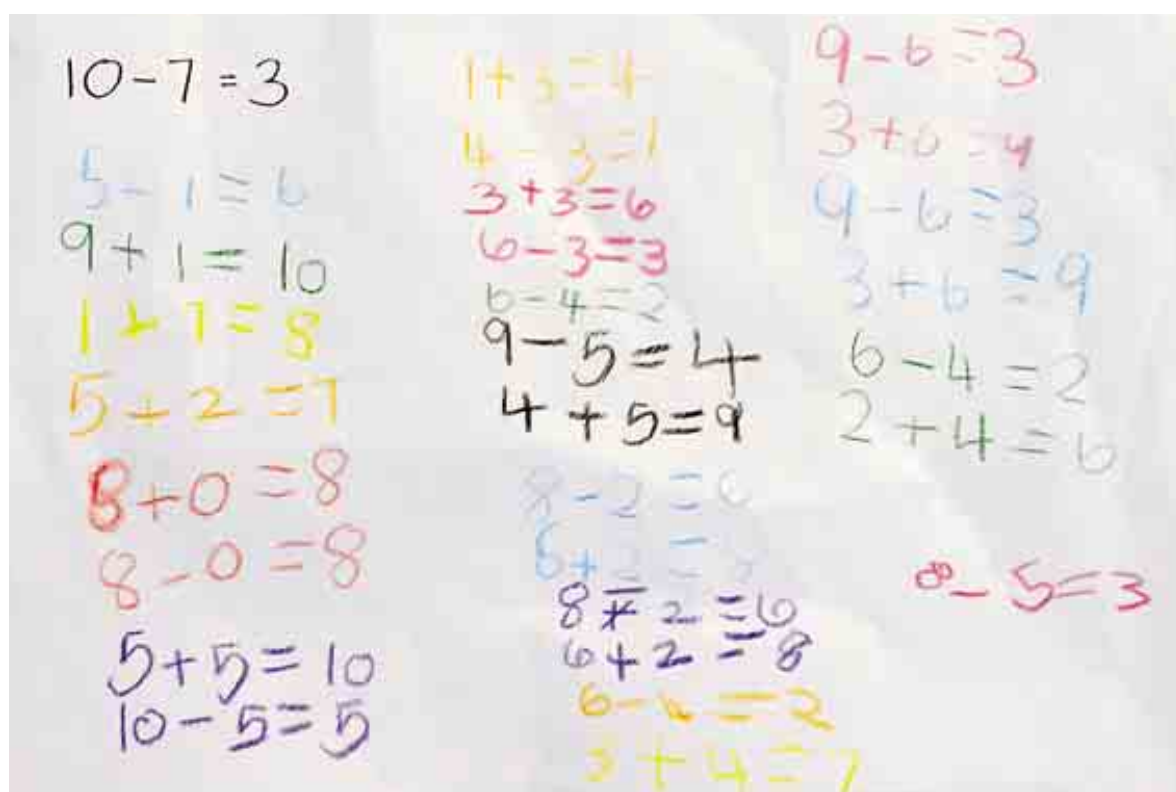 10-7=3
5-1=6
9+1=10
1+7=8
5+2=7
8+0=8
8-0=8
5+5=10
10-5=5
1+3=4
4-3=1
3+3=6
6-3=3
6-4=2
9-5=4
4+5=9
8-2=6
6+2=8
8-2=6
6+2=8
6-4=2
3+4=7
9-6=3
3+6=9
9-6=3
3+6=9
6-4=2
2+4=6
8-5=3